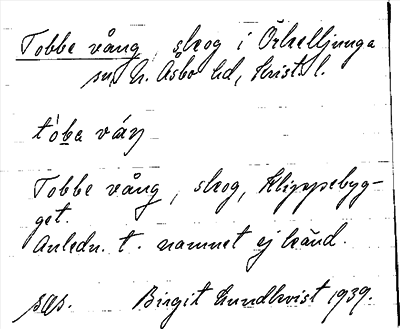 Tobbe vång, skog i Örkelljunga
sn, N. Åsbo hd, Krist. l.
tóbe váŋ
Tobbe vång, skog, Klippebyg-
get.
Anledn. t. namnet ej känd.
Birgit Lundkvist 1939.